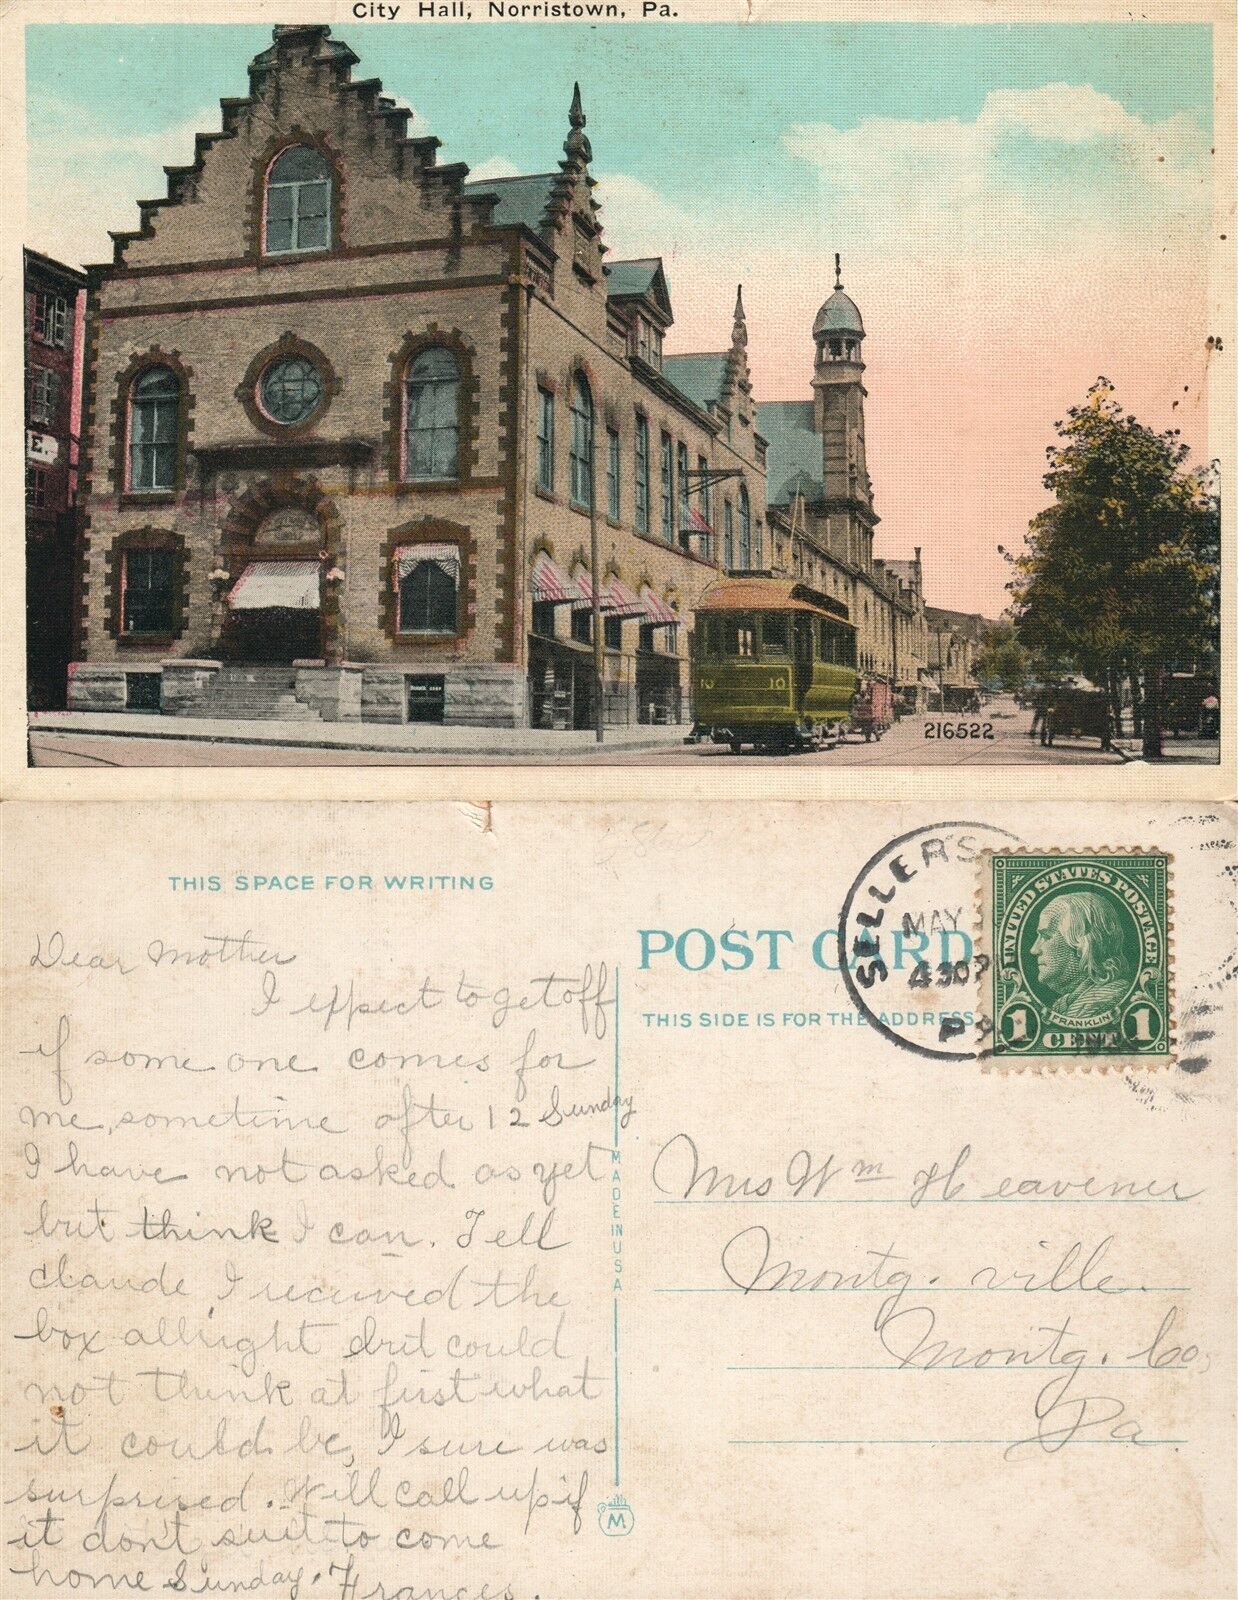 City Hall, Norristown, Pa.
E.
10 10
216522
THIS SPACE FOR WRITING
Dear Mother
I expect to get off
if some one comes for
me, sometime after 12 Sunday
I have not asked as yet
but think I can. Tell
Claude I received the
box allright but could
not think at first what
it could be, I sure was
surprised. Will call up if
it don't suit to come
home Sunday. Frances.
SELLERS
MAY
430P
PA.
POST CARD
THIS SIDE IS FOR THE ADDRESS
UNITED STATES POSTAGE
FRANKLIN
1 CENT 1
MADE IN USA
M
Mrs Wm Heavener
Montg. ville.
Montg. Co,
Pa.